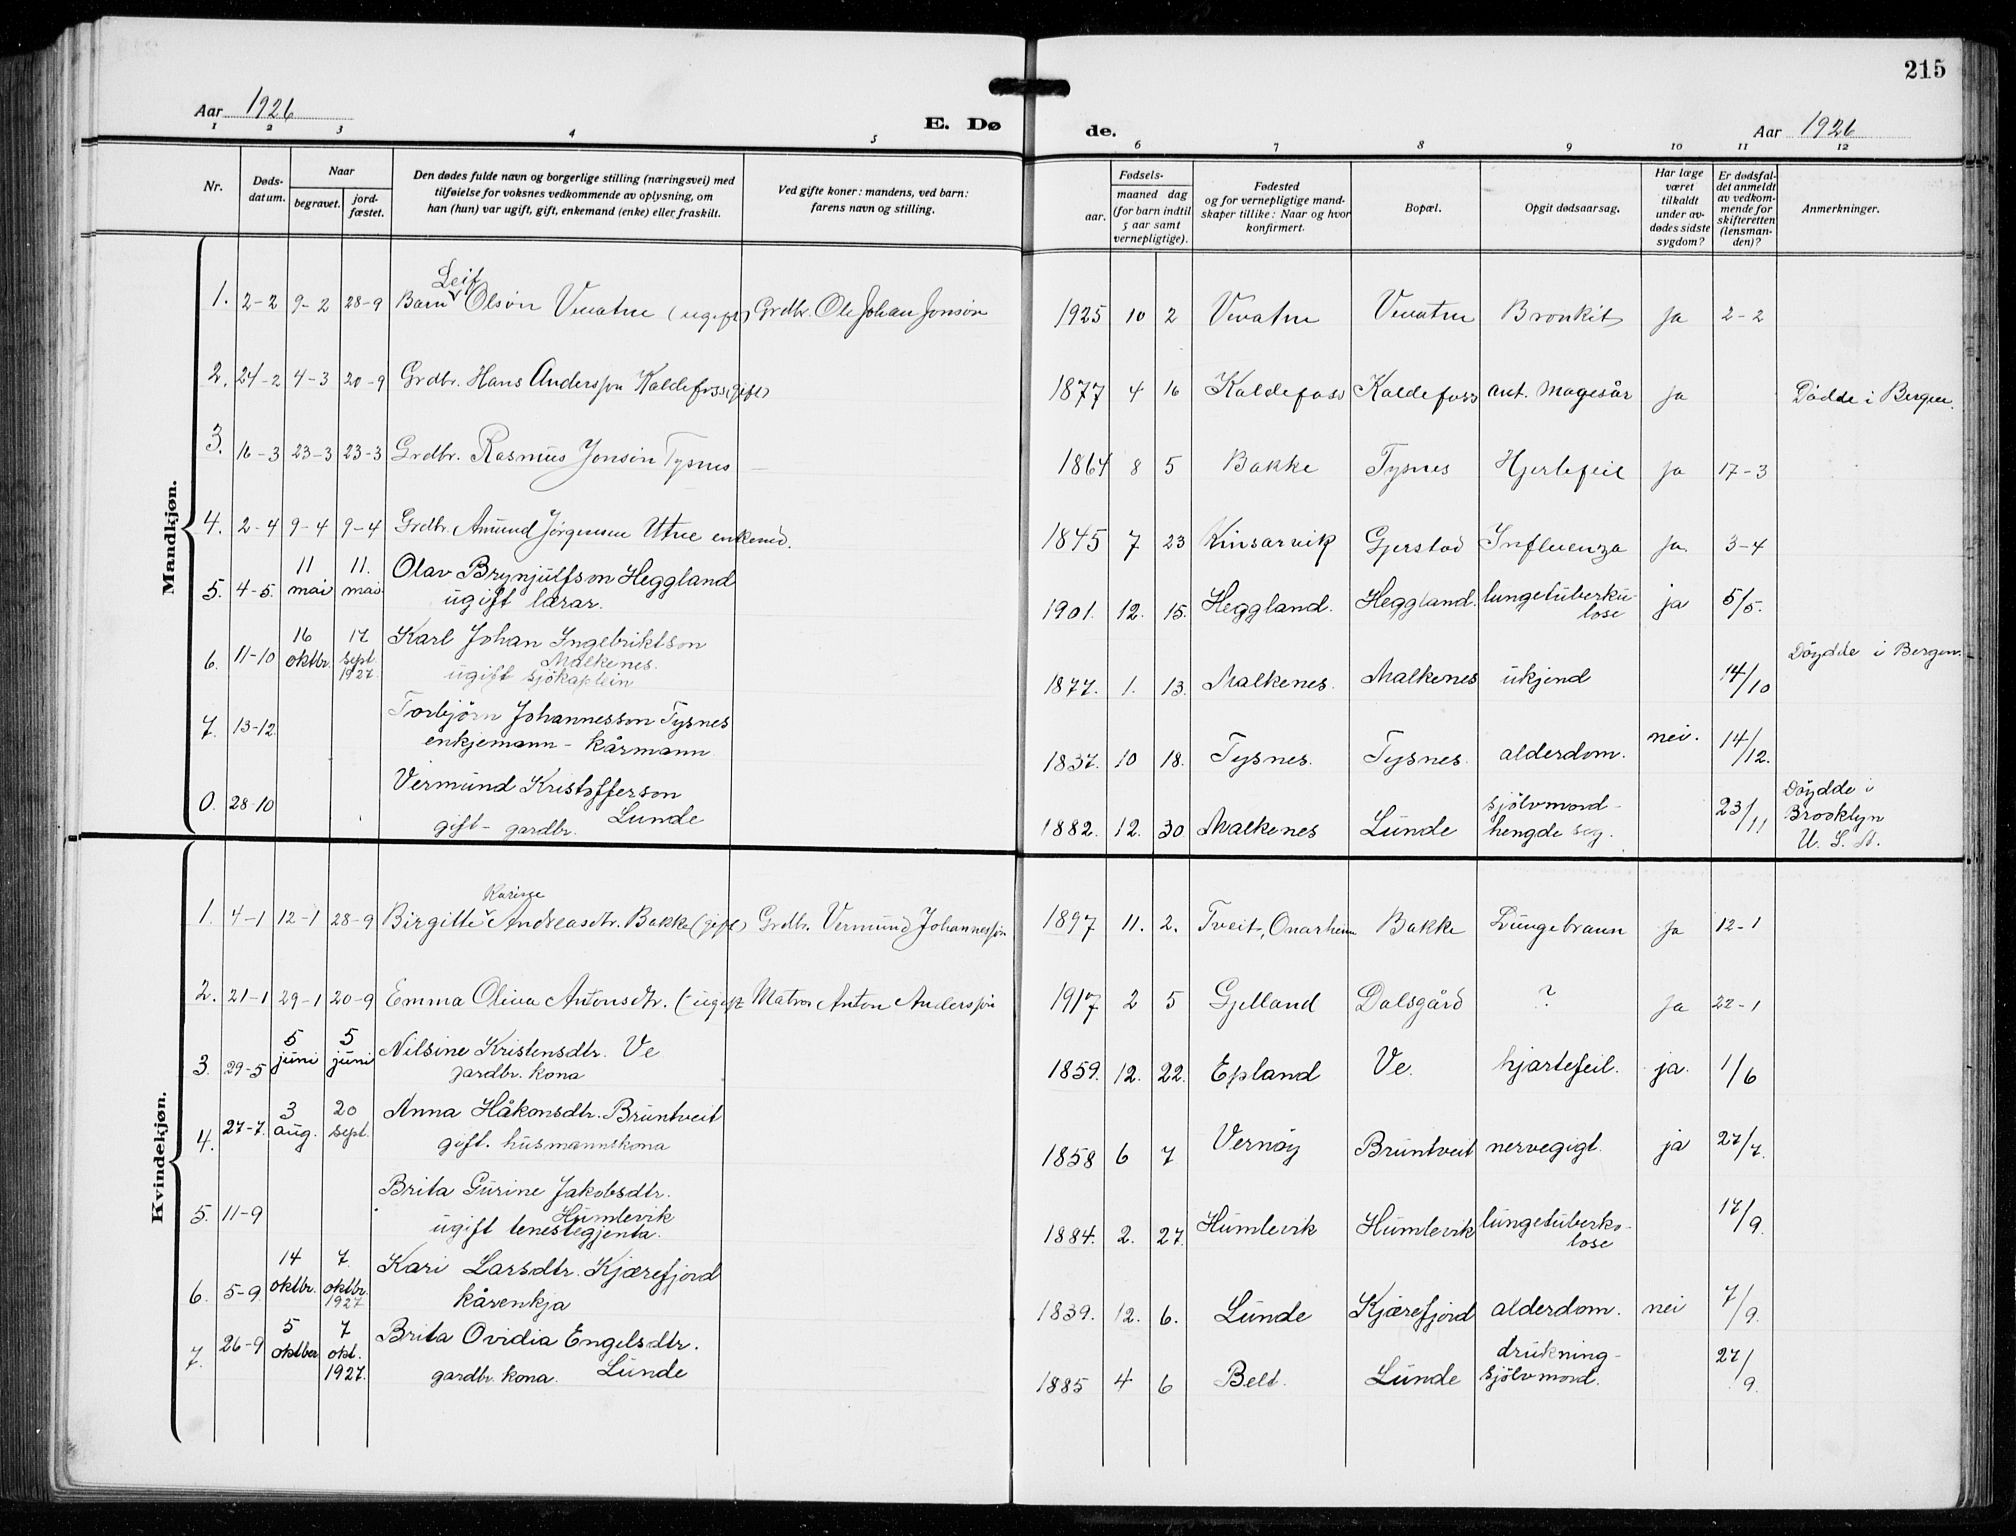 215
Aar 1926
E. Dø
de.
Aar 1926
1 2 3 4 5
6 7 8 9 10 11 12
Nr.
Døds-
datum.
Naar
begravet.
jord-
fæstet.
Den dødes fulde navn og borgerlige stilling (næringsvei) med
tilføielse for voksnes vedkommende av oplysning, om
han (hun) var ugift, gift, enkemand (enke) eller fraskilt.
Ved gifte koner: mandens, ved barn:
farens navn og stilling.
Fødsels-
aar.
maaned dag
(for barn indtil
5 aar samt
vernepligtige).
Fødested
og for vernepligtige mand-
skaper tillike: Naar og hvor
konfirmert.
Bopæl.
Opgit dødsaarsag.
Har læge
været
tilkaldt
under av-
dødes sidste
sygdom?
Er dødsfal-
det anmeldt
av vedkom-
mende for
skifteretten
(lensman-
den)?
Anmerkninger.
Mandkjøn.
Leif
1. 2-2 9-2 28-9 Barn Olson Vevatne (ugift) Grdbr. Ole Johan Jonsøn 1925 10 2 Vevatne Vevatne Bronkit Ja 2-2
2. 24-2 4-3 20-9 Grdbr. Hans Andersson Kaldefoss (gift) 1877 4 16 Kaldefoss Kaldefoss ant. Magesår Ja Dödde i Bergen.
3. 16-3 23-3 23-3 Grdbr. Rasmus Jonson Tysnes — 1864 8 5 Bakke Tysnes Hjertefeil Ja 17-3
4. 2-4 9-4 9-4 Grdbr. Amund Jørgensen Utne enkemd. 1845 7 23 Kinsarvik Gjerstad Influenza Ja 3-4
5. 4-5. 11 mai 11. mai Olav Brynjulfson Heggland
ugift lærar.
1901. 12. 15. Heggland. Heggland. lungetuberku-
lose ja 5/5.
6. 11-10 16 oktbr. 17 sept. 1927. Karl Johan Ingebriktson
Malkenes.
ugift sjökaptein
1877. 1. 13. Malkenes. Malkenes ukjend 14/10 Döydde i Bergen.
7. 13-12 Torbjörn Johannesson Tysnes
enkjemann - kårmann
1837. 10 18. Tysnes. Tysnes. alderdom. nei. 14/12.
0. 28-10 Vermund Kristofferson
Lunde
gift - gardbr.
1882. 12. 30 Malkenes Lunde sjölvmord -
hengde seg. 23/11 Döydde i
Brooklyn
U. S. A.
Kvindekjøn.
Karine
1. 4-1 12-1 28-9 Birgitte Andreasdtr. Bakke (gift) Grdbr. Vermund Johannessøn 1897 11. 2. Tveit, Onarheim Bakke Lungebraun Ja 12-1
2. 21-1 29-1 20-9 Emma Oliva Antonsdtr. (ugift Matros Anton Anderssøn 1917 2 5 Gjelland Dalsgård ? Ja 22-1
3. 29-5 5 juni 5 juni Nilsine Kristensdtr. Ve
gardbr. kona
1859. 12. 22. Epland Ve. hjartefeil. ja. 1/6
4. 27-7. 3 aug. 20 sept. Anna Håkonsdtr. Bruntveit
gift. husmannskona
1858 6 7 Vernöy Bruntveit nervegigt. ja 27/7.
5. 11-9 Brita Gurine Jakobsdtr.
Humlevik
ugift tenestegjenta.
1884. 2. 27. Humlevik Humlevik lungetuberko-
lose 17/9.
6. 5-9. 14 oktbr. 7. oktbr. 1927 Kari Larsdtr. Kjærefjord
kårenkja
1839. 12. 6. Lunde Kjærefjord alderdom. nei 7/9.
7. 26-9 5 oktber 7 okt. 1927. Brita Ovidia Engelsdtr.
Lunde
gardbr. kona.
1885 4 6 Belt. Lunde drukning -
sjölvmord. 27/9.